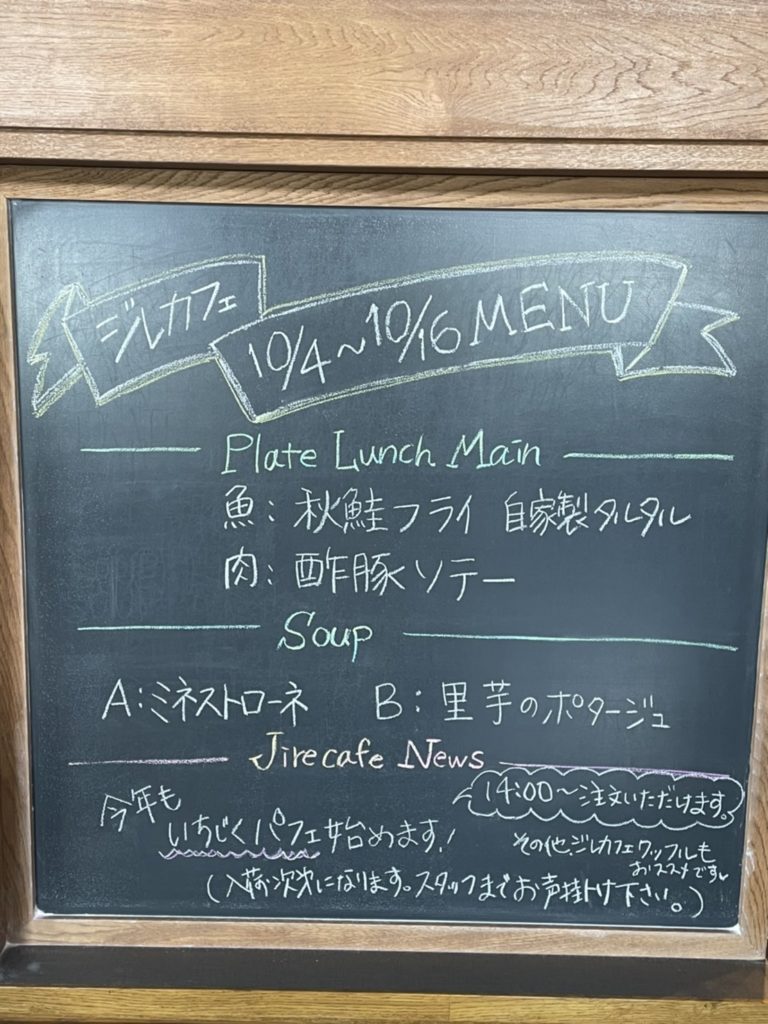 ジルカフェ
10/4~10/16 MENU
Plate Lunch Main
魚: 秋鮭フライ 自家製タルタル
肉: 酢豚ソテー
Soup
A:ミネストローネ B:里芋のポタージュ
Jirecafe News
今年も
いちじくパフェ始めます!
14:00~注文いただけます。
その他、ジルカフェワッフルも
おススメです♥
(入荷次第になります。スタッフまでお声掛け下さい。)